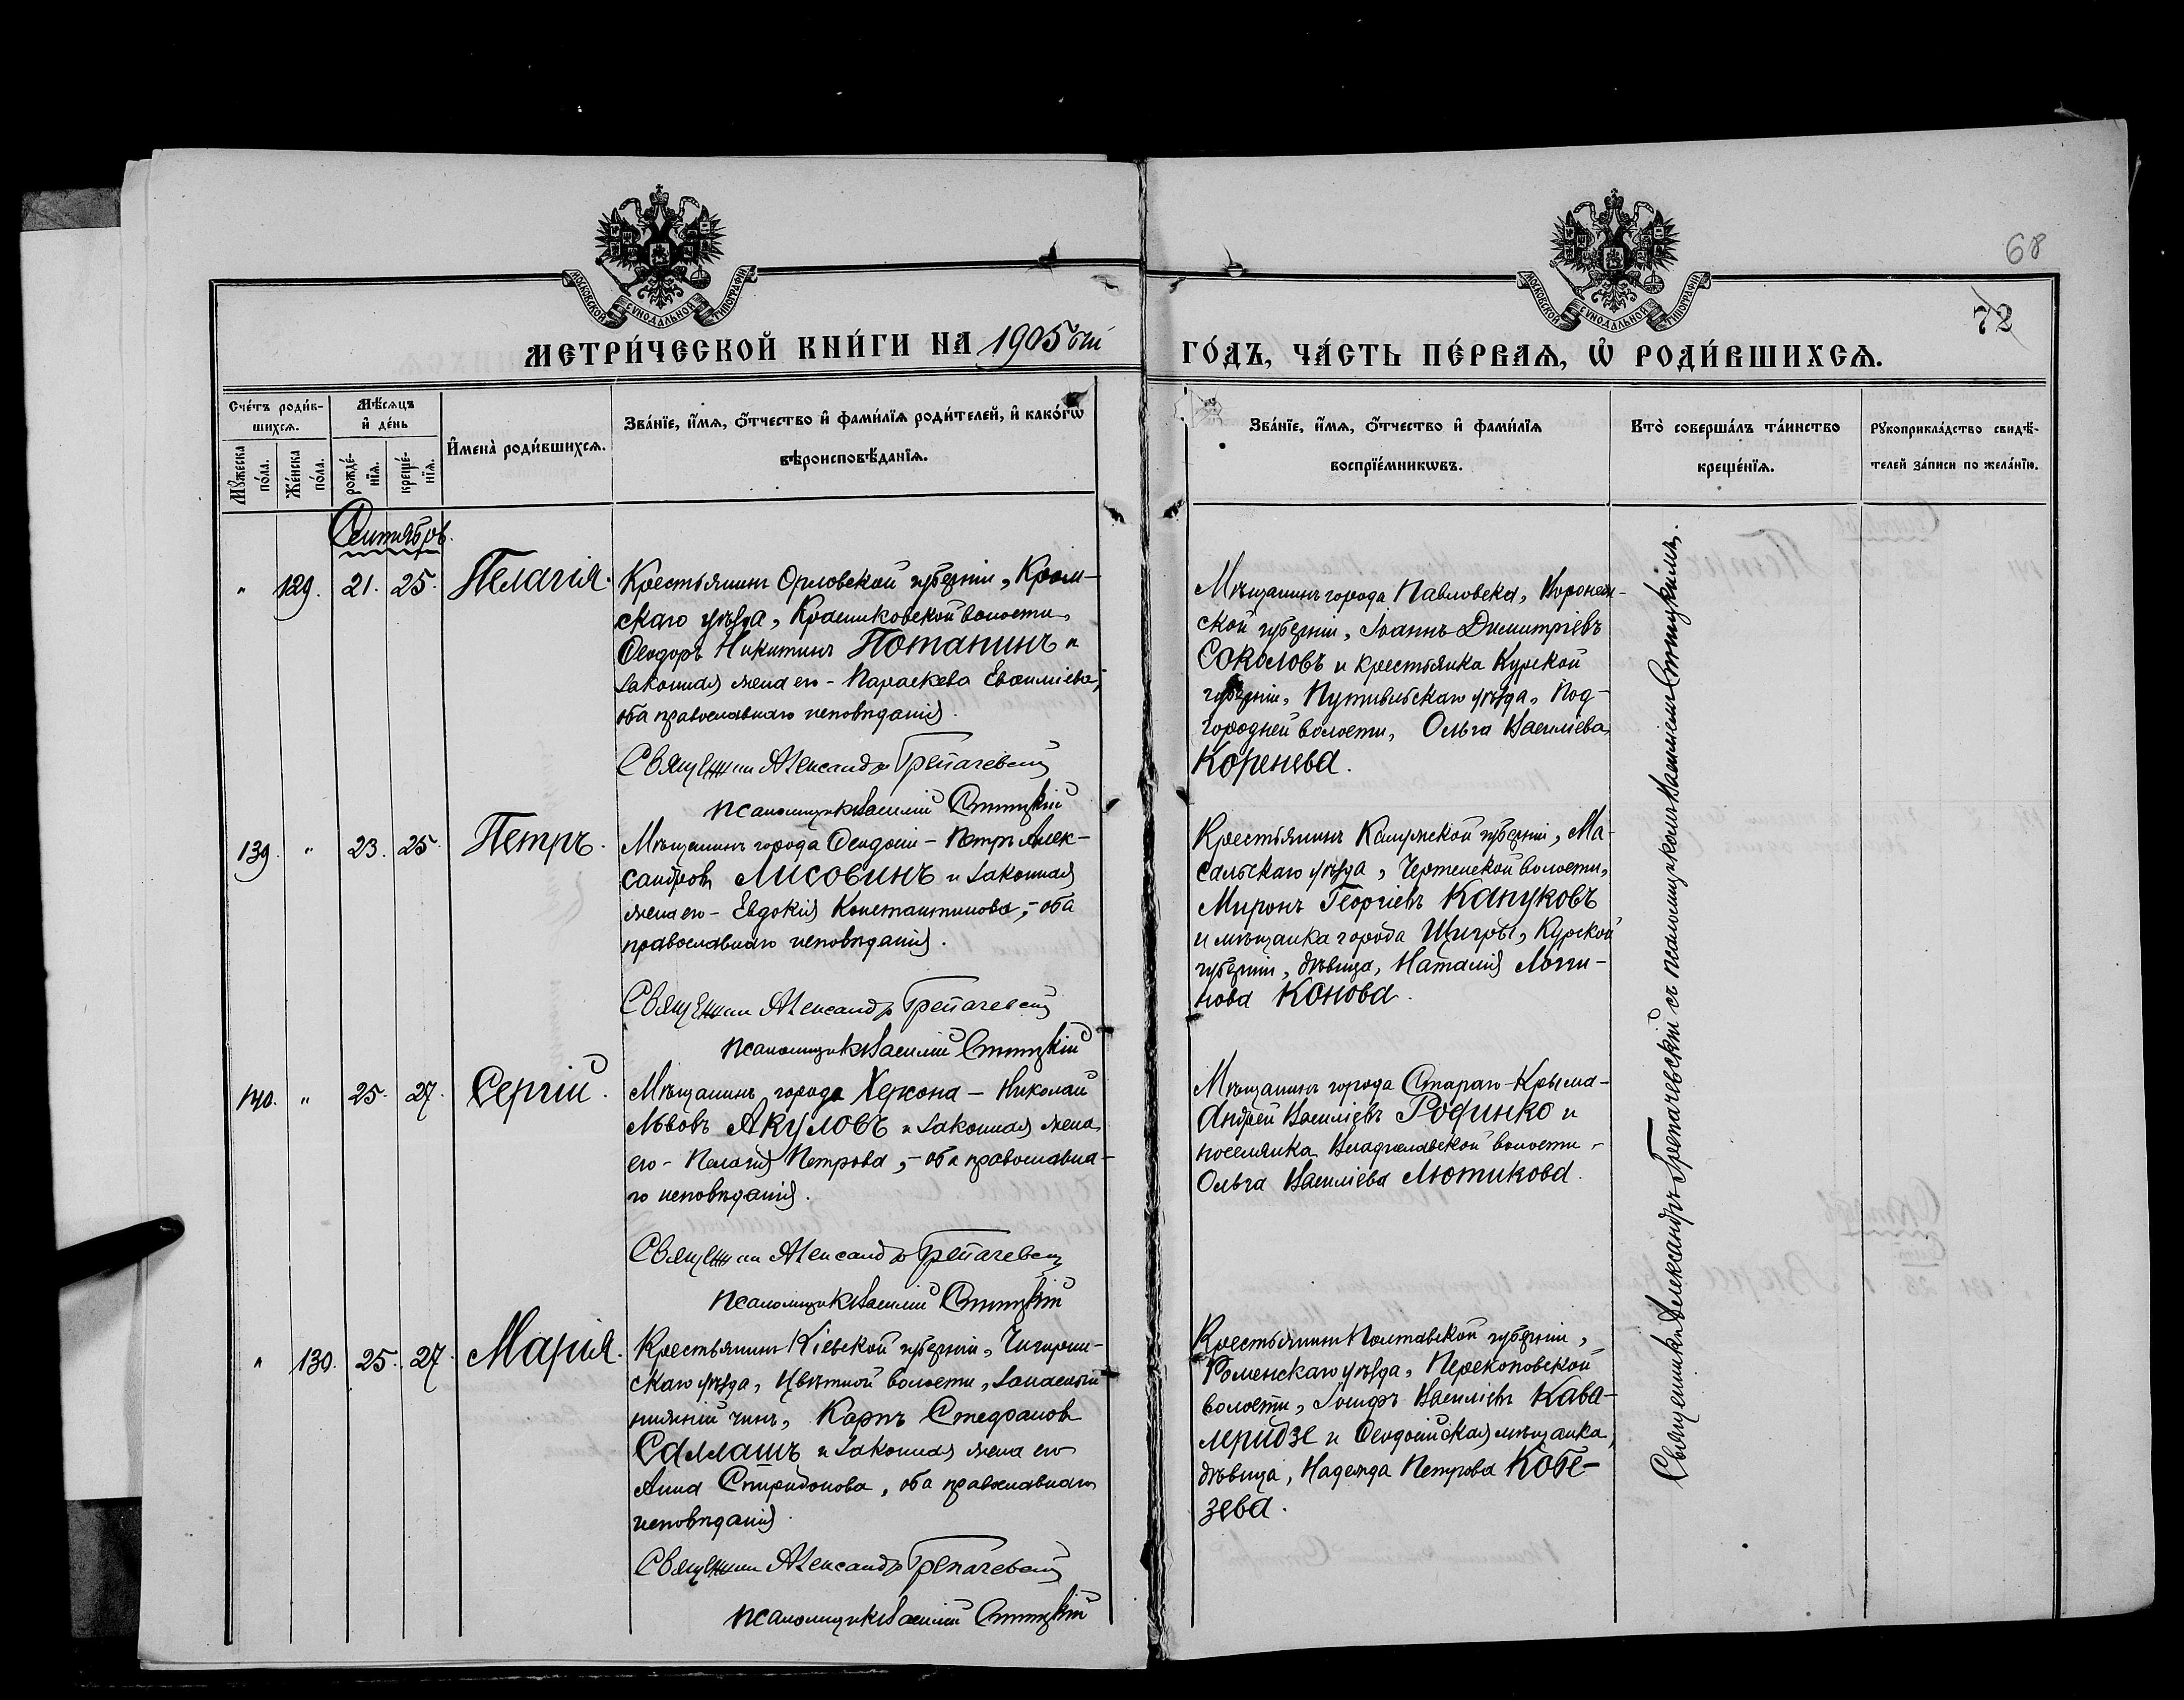 МОСКОВСКОЙ СѴНОДАЛЬНОЙ ТИПОГРАФІИ
МОСКОВСКОЙ СѴНОДАЛЬНОЙ ТИПОГРАФІИ
68
72
МЕТРИ́ЧЕСКОЙ КНИ́ГИ НА 1905ый
ГО́ДЪ, ЧА́СТЬ ПЕ́РВАѦ, Ѡ҆ РОДИ́ВШИХСѦ.
Сче́тъ роди́в-
шихсѧ.
Мꙋ́жеска по́ла.
Же́нска по́ла.
Мѣ́сѧцъ
и҆ де́нь
рожде́-
нїѧ.
креще́-
нїѧ.
И҆мена̀ роди́вшихсѧ.
Зва́нїе, и҆́мѧ, ѻ҆́тчество и҆ фами́лїѧ роди́телей, и҆ како́гѡ
вѣроисповѣ́данїѧ.
Зва́нїе, и҆́мѧ, ѻ҆́тчество и҆ фами́лїѧ
воспрїе́мникѡвъ.
Кто̀ соверша́лъ та́инство
креще́нїѧ.
Рꙋкоприкла́дство свидѣ́-
телей за́писи по жела́нїю.
Сентябрь.
" 129. 21. 25. Пелагія.
Крестьянинъ Орловской губерніи, Кром-
скаго уѣзда, волости,
Ѳеодоръ Никитинъ Потапинъ и
законная жена его - Параскева Евфиміева,
оба православнаго исповѣданія.
Священник Александр Грепачевский
псаломщикъ Василій
Мѣщанинъ города Павловска, Воронеж-
ской губерніи, Іоаннъ Димитріевъ
Соколовъ и крестьянка Курской
губерніи, Путивльскаго уѣзда, Под-
городней волости, Ольга Василіева
Коренева.
139. " 23. 25. Петръ.
Мѣщанинъ города Ѳеодосіи - Петръ Алек-
сандровъ Лисовинъ и законная
жена его - Евдокія Константинова, - оба
православнаго исповѣданія.
Священник Александр Грепачевский
псаломщикъ Василій
Крестьянинъ Калужской губерніи, Ма-
сальскаго уѣзда, Чертенской волости,
Миронъ Георгіевъ Кануковъ
и мѣщанка города Щигры, Курской
губерніи, дѣвица, Наталія Логи-
нова Конова.
140. " 25. 27. Сергій.
Мѣщанинъ города Херсона - Николай
Львовъ Акуловъ и законная жена
его - Пелагія Петрова, - оба православна-
го исповѣданія.
Священник Александр Грепачевский
псаломщикъ Василій
Мѣщанинъ города Стараго-Крыма -
Андрей Василіевъ Родинко и
поселянка Владиславской волости -
Ольга Василіева Лютикова.
" 130. 25. 27. Марія.
Крестьянинъ Кіевской губерніи, Чигирин-
скаго уѣзда, Цвѣтной волости, запасный
нижній чинъ, Карпъ Стефановъ
Саллашъ и законная жена его
Анна Спиридонова, оба православнаго
исповѣданія.
Священник Александр Грепачевский
псаломщикъ Василій
Крестьянинъ Полтавской губерніи,
Роменскаго уѣзда, Перекоповской
волости, Іосифъ Василіевъ Кава-
леридзе и Ѳеодосійская мѣщанка,
дѣвица, Надежда Петрова Кобе-
зева.
Священникъ Александръ Грепачевскій съ псаломщикомъ Василіемъ